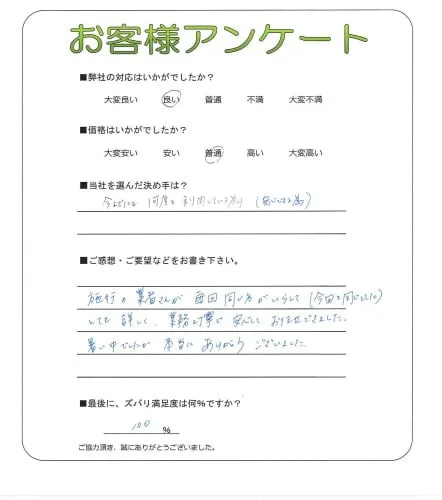 お客様アンケート
■弊社の対応はいかがでしたか?
大変良い 良い 普通 不満 大変不満
■価格はいかがでしたか?
大変安い 安い 普通 高い 大変高い
■当社を選んだ決め手は?
今までにも 何度も 利用している為 (安心できる為)
■ご感想・ご要望などをお書き下さい。
施行の 業者さんが 毎回 同じ方がいらして (今回も同じでした)
とても 詳しく、業務も丁寧で 安心して おまかせできました。
暑い中でしたが 本当に ありがとう ございました。
■最後に、ズバリ満足度は何%ですか?
100 %
ご協力頂き、誠にありがとうございました。